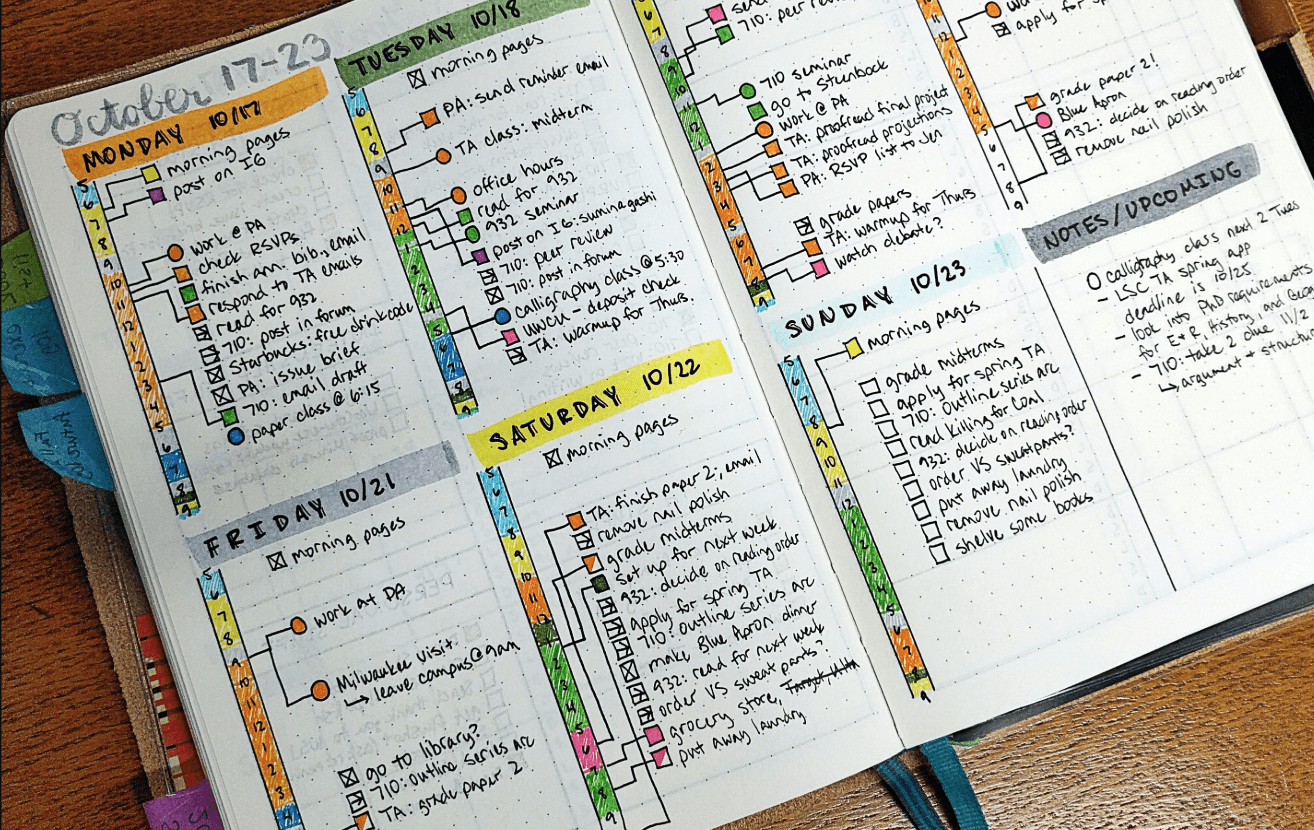 October 17-23
MONDAY 10/17
morning pages
post on IG
work @ PA
check RSVPs
finish ann. bib., email
respond to TA emails
read for 932
710: post in forum
Starbucks: free drink code
PA: issue brief
710: email draft
paper class @ 6:15
TUESDAY 10/18
morning pages
PA: send reminder email
TA class: midterm
office hours
read for 932
932 seminar
post on IG: suminagashi
710: peer review
710: post in forum
calligraphy class @ 5:30
UWCU - deposit check
TA: warmup for Thurs.
710: peer review
710 seminar
go to Steenbock
work @ PA
TA: proofread final project
TA: proofread projections
PA: RSVP list to Jen
grade papers
TA: warmup for Thurs
watch debate?
apply for
grade paper 2!
Blue Apron
932: decide on reading order
remove nail polish
FRIDAY 10/21
morning pages
work at PA
Milwaukee visit
↳ leave campus @ 9am
go to library?
710: outline series arc
TA: grade paper 2
SATURDAY 10/22
morning pages
TA: finish paper 2, email
remove nail polish
grade midterms
set up for next week
932: decide on reading order
apply for spring TA
710: outline series arc
make Blue Apron dinner
932: read for next week
order VS sweatpants?
grocery store, Target, Ulta
put away laundry
SUNDAY 10/23
morning pages
grade midterms
apply for spring TA
710: outline series arc
read Killing for Coal
932: decide on reading order
order VS sweatpants?
put away laundry
remove nail polish
shelve some books
NOTES/UPCOMING
O calligraphy class next 2 Tues
- LSC TA spring app
deadline is 10/25
- look into PhD requirements
for E+R, History, and
- 710: take 2 due 11/2
↳ argument + structure